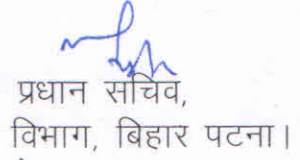 प्रधान सचिव,
विभाग, बिहार पटना।